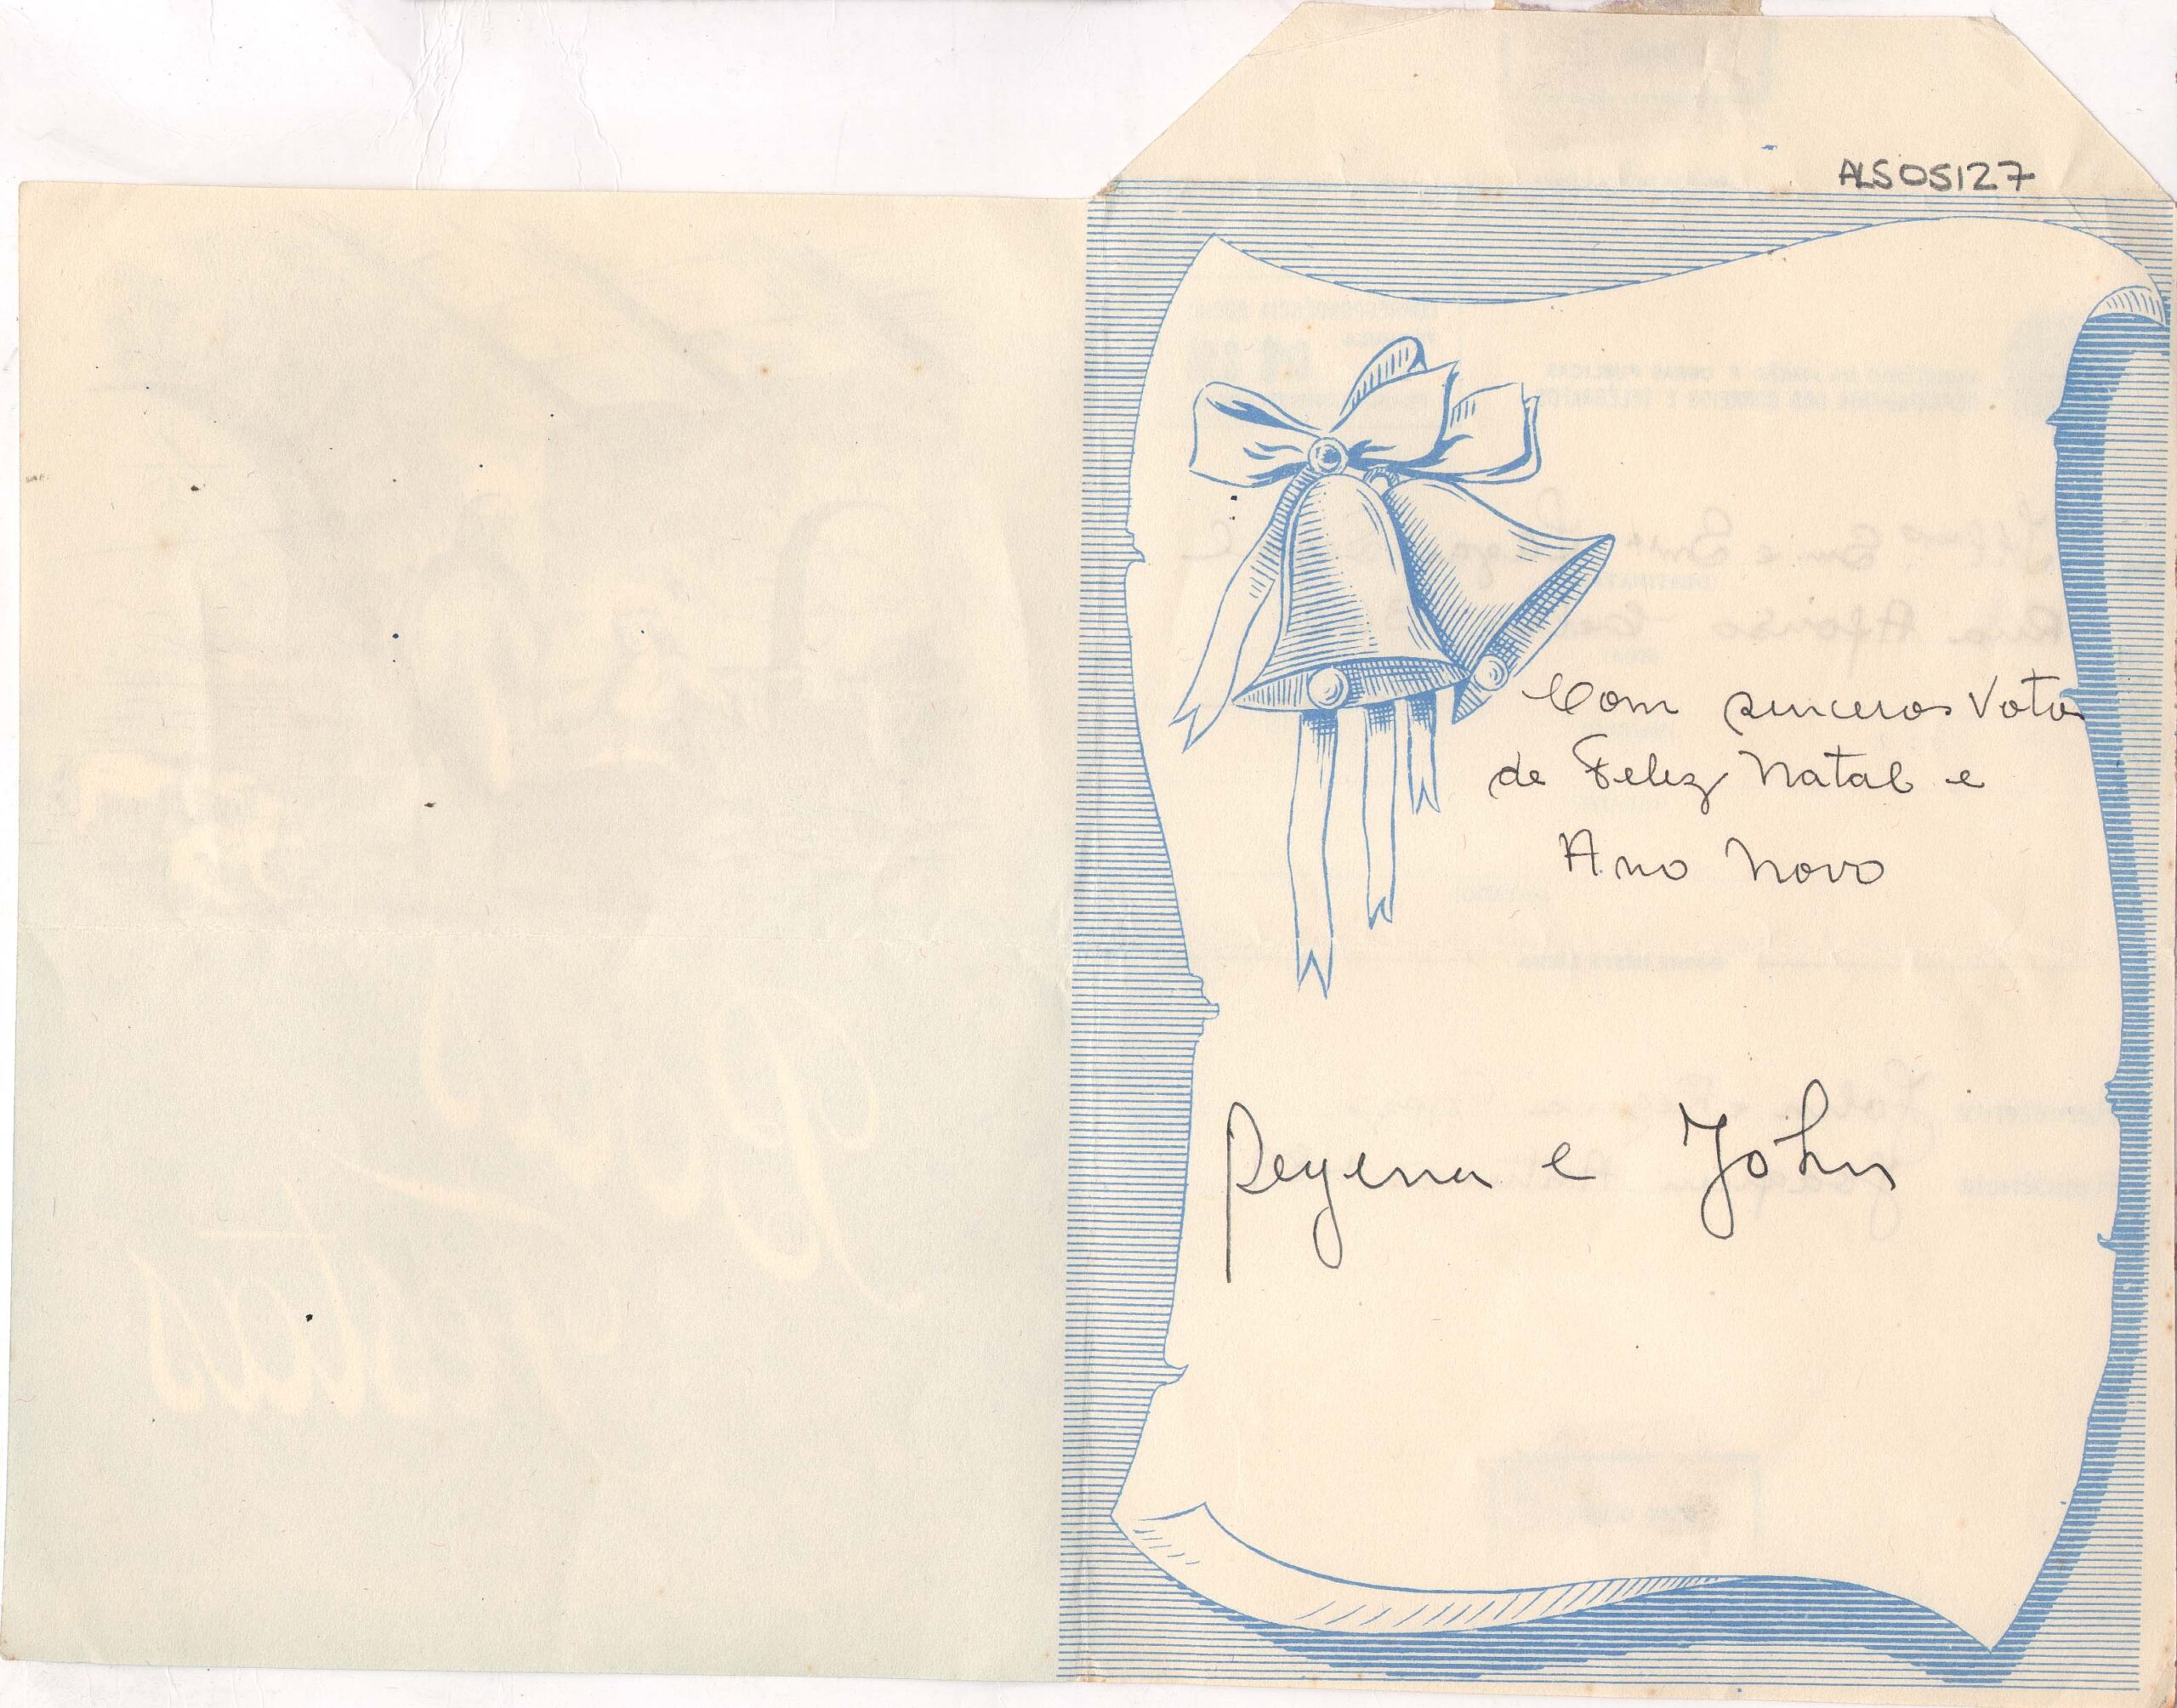 ALS05127
Com sinceros Votos
de Feliz Natal e
Ano Novo
Regina e John